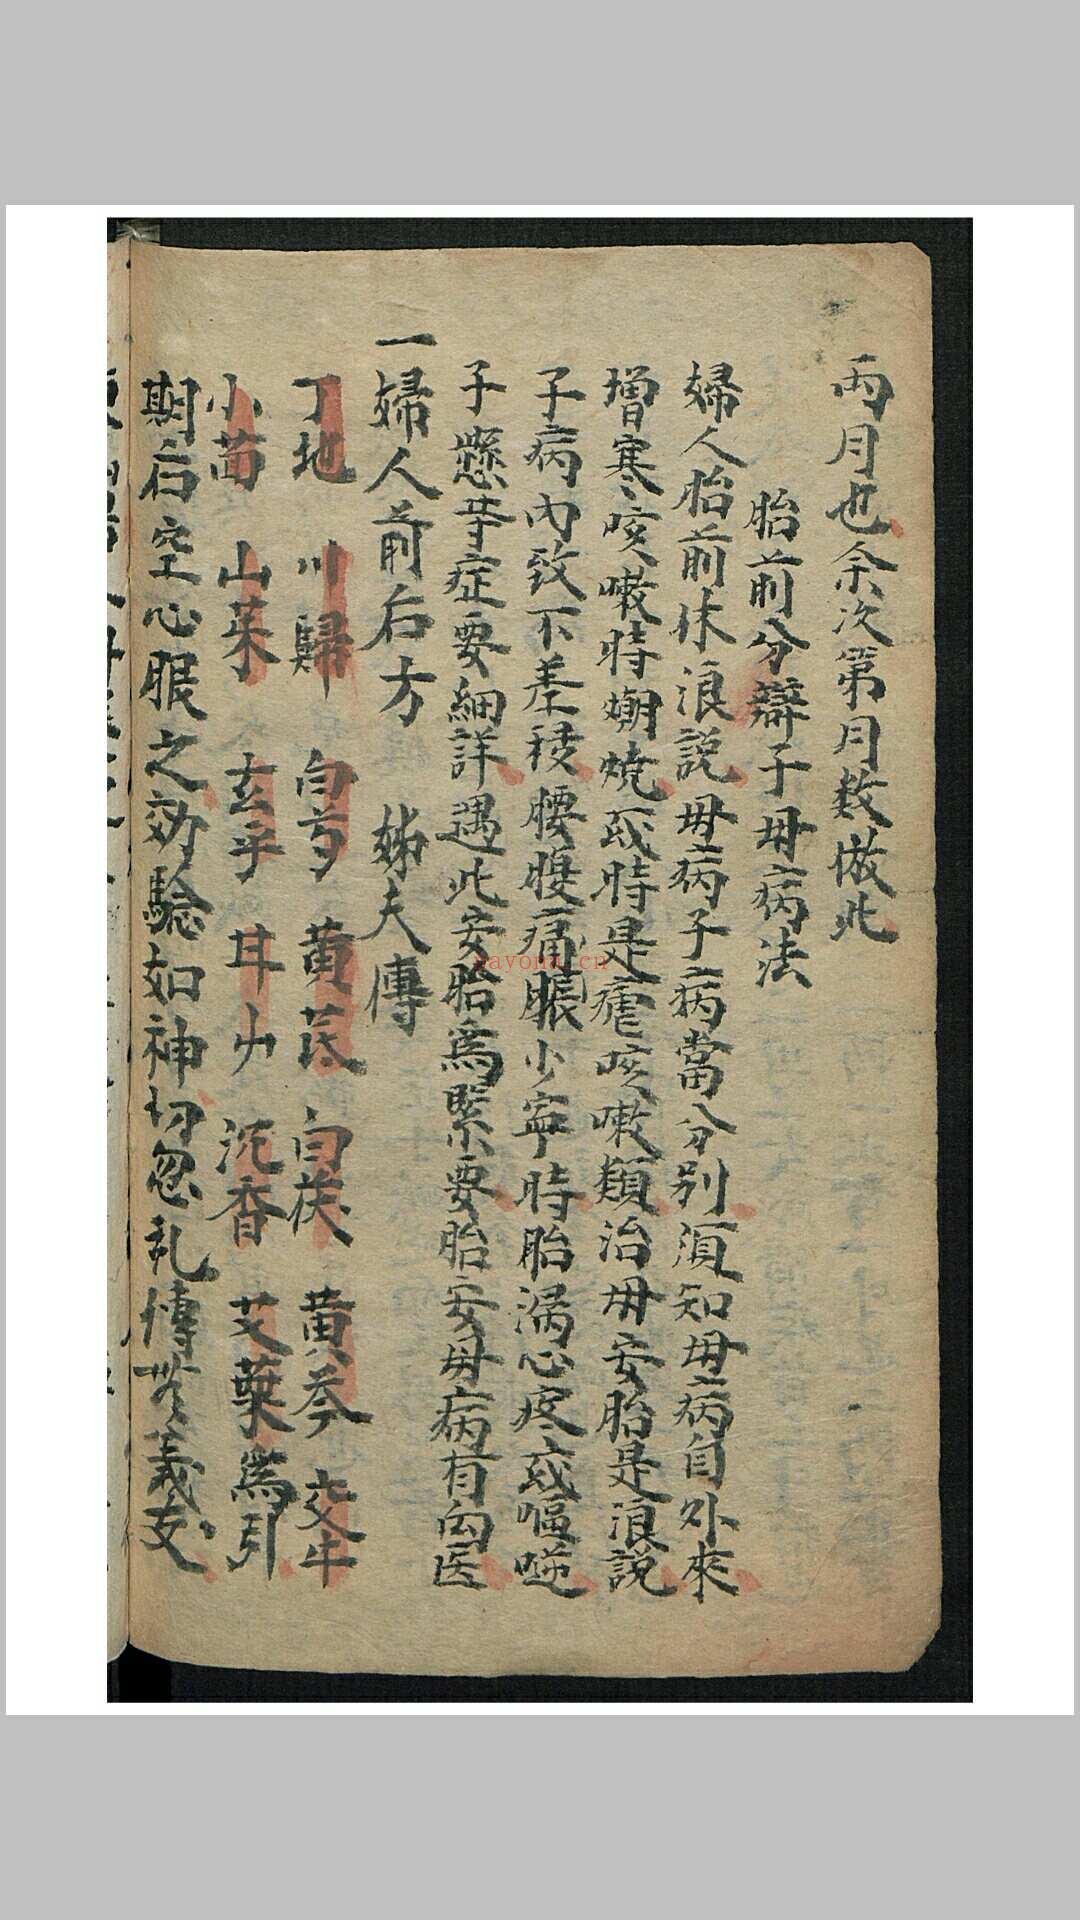 両月也余次第月数倣此
胎前分辯子毋病法
婦人胎前休浪説毋病子病當分别須知毋病自外來
增寒咳嗽時潮燒或時是瘧咳嗽類治毋安胎是浪説
子病内致不差移腰腹痛脹少寧時胎漏心疼或嘔逆
子懸等症要細詳遇此安胎爲緊要胎安毋病有向医
一婦人前后方 姊夫傳
丁地 川歸 白芍 黄芪 白茯 黄芩 交牛
小茴 山茱 玄乎 甘屮 沉香 艾葉爲引
期后空心服之効驗如神切忽乱傳無義友
hayona.cn